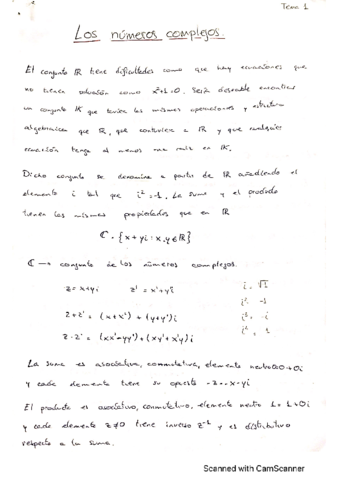 Tema 1
Los números complejos.
El conjunto ℝ tiene dificultades como que hay ecuaciones que
no tienen solución como x²+1=0. Sería deseable encontrar
un conjunto K que tuviera las mismas operaciones y estructura
algebraica que ℝ, que contuviese a ℝ y que cualquier
ecuación tenga al menos una raíz en K.
Dicho conjunto se denomina a partir de ℝ añadiendo el
elemento i tal que i²=-1. La suma y el producto
tienen las mismas propiedades que en ℝ
ℂ = {x+yi : x,y∈ℝ}
ℂ → conjunto de los números complejos.
z = x+yi z' = x'+y'i i = √1
i² -1
z+z' = (x+x') + (y+y')i i³ = -i
z·z' = (xx'-yy') + (xy'+x'y)i i⁴ = 1
La suma es asociativa, conmutativa, elemento neutro 0=0+0i
y cada elemento tiene su opuesto -z=-x-yi
El producto es asociativo, conmutativo, elemento neutro 1=1+0i
y cada elemento z≠0 tiene inverso z⁻¹ y es distributivo
respecto a la suma.
Scanned with CamScanner